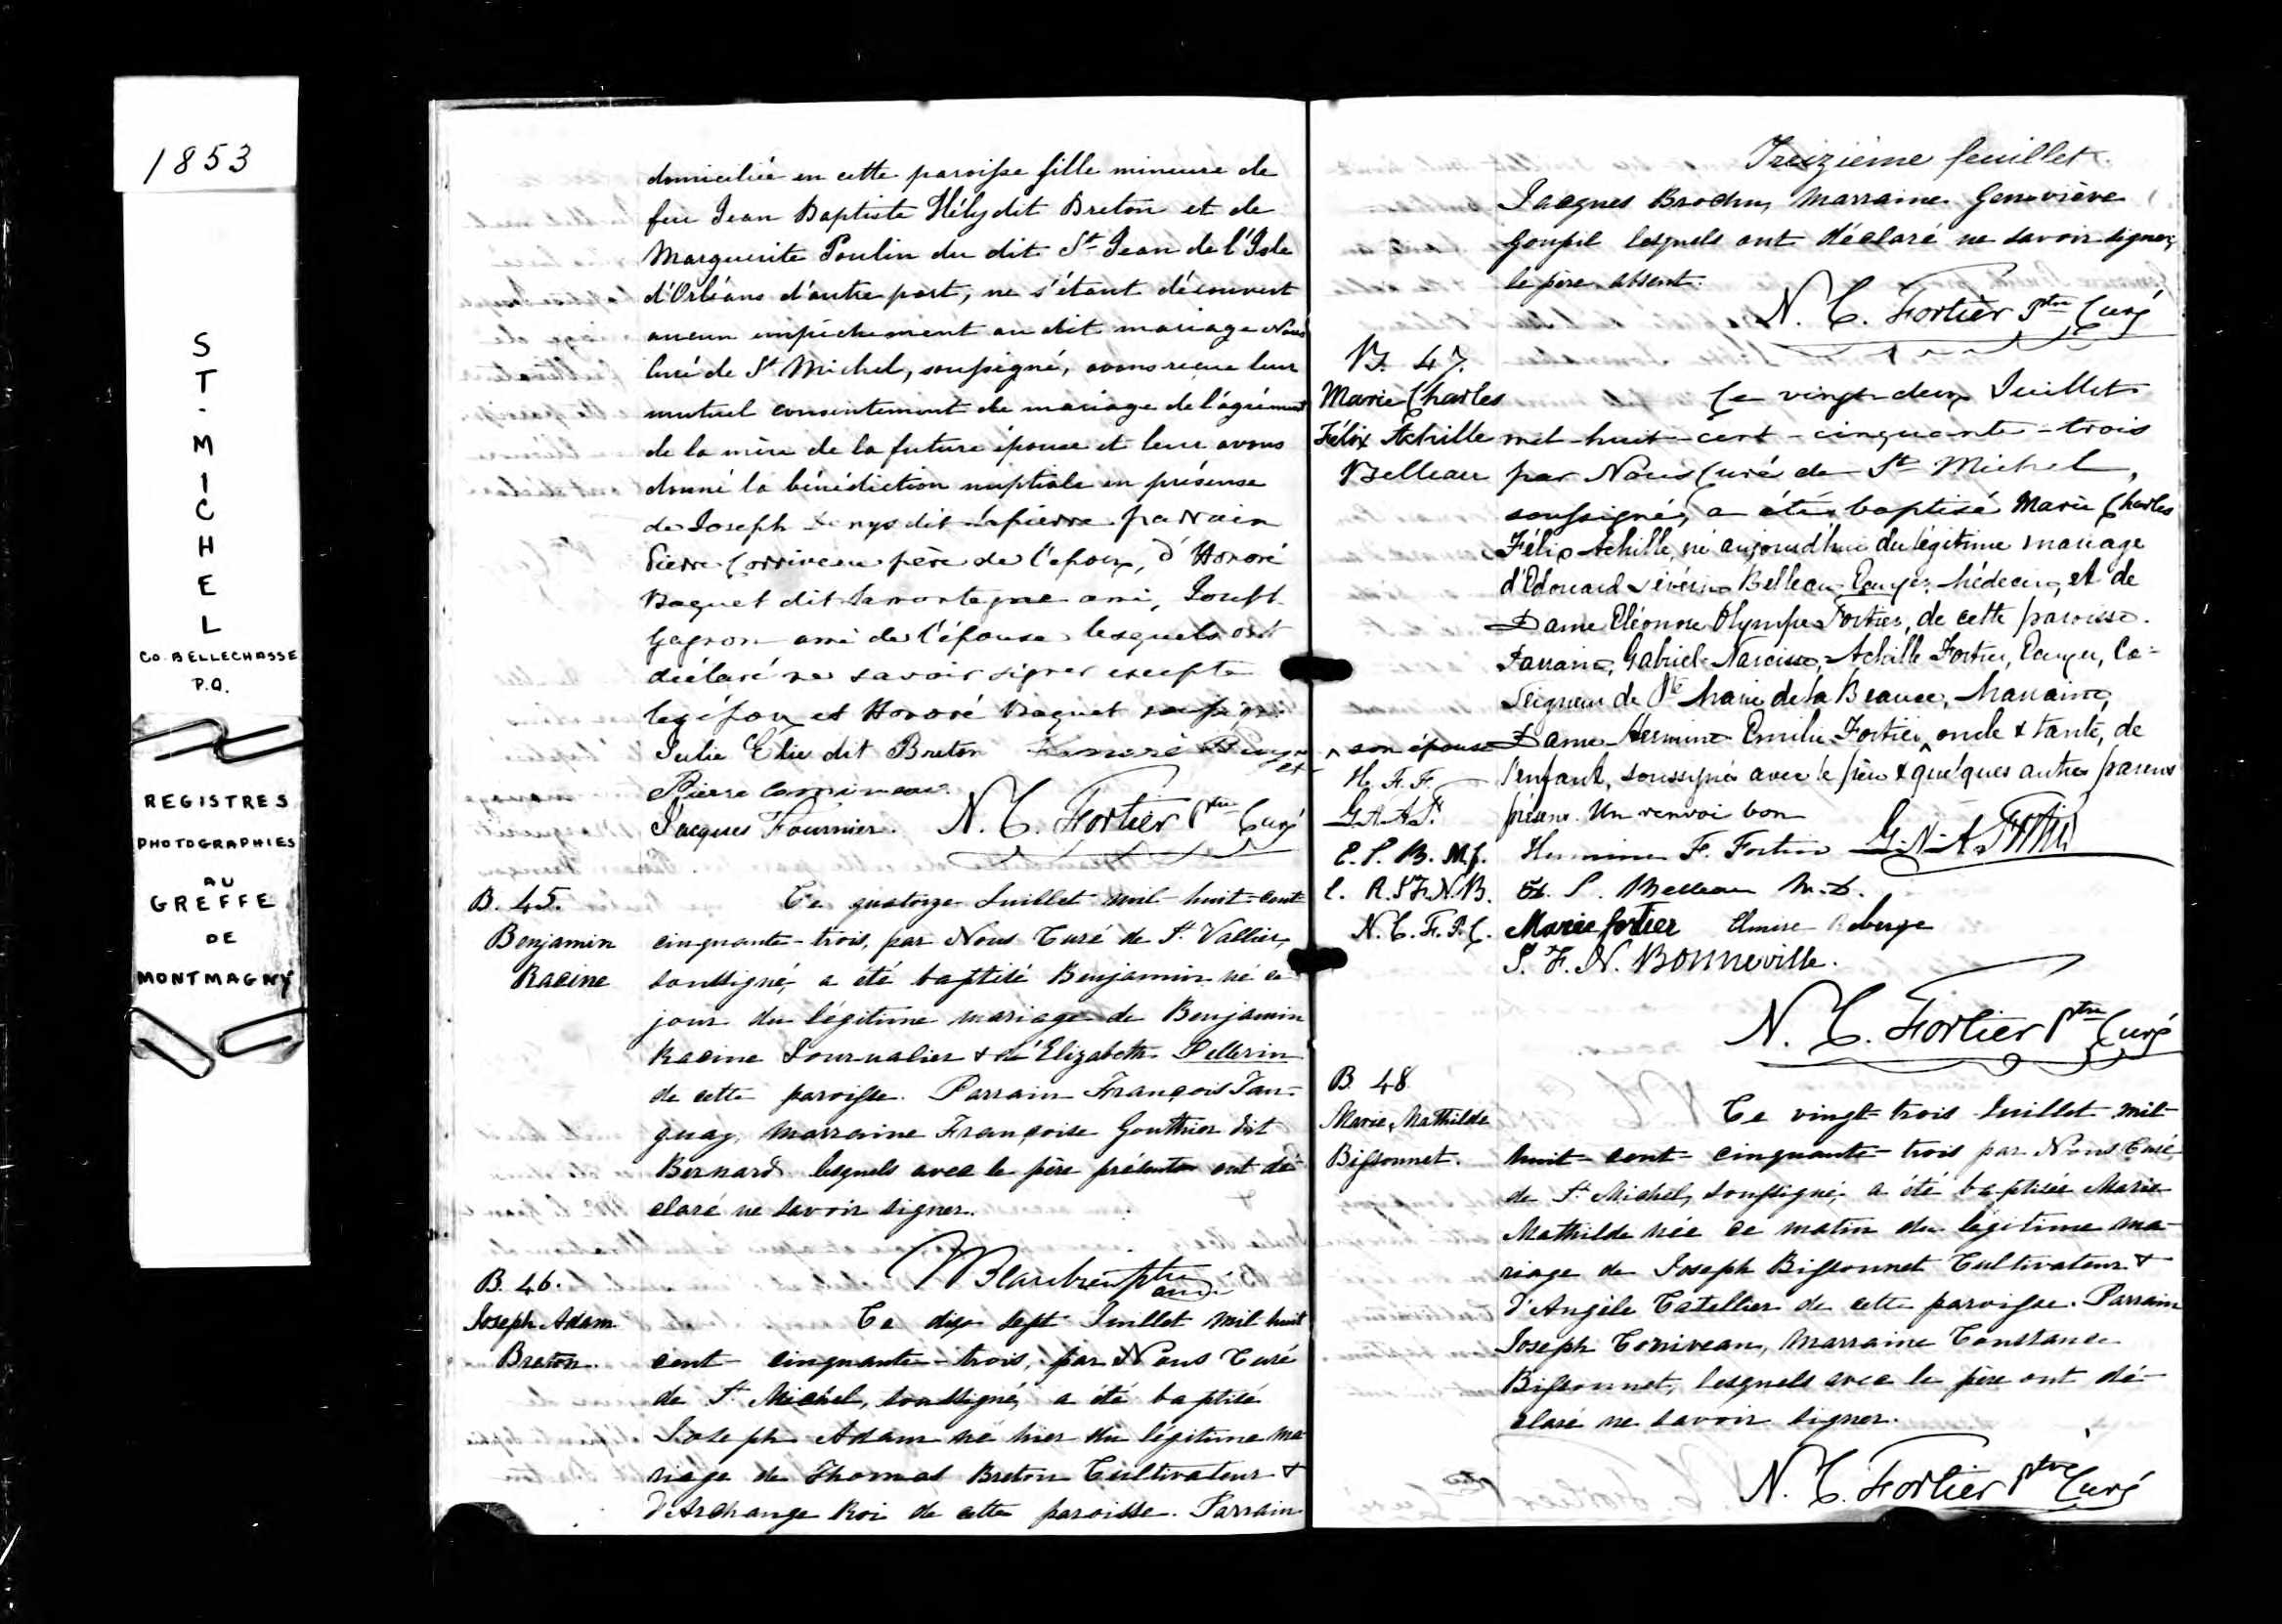 1853
ST. MICHEL
CO. BELLECHASSE
P.Q.
REGISTRES
PHOTOGRAPHIES
AU
GREFFE
DE
MONTMAGNY
domiciliée en cette paroisse fille mineure de
feu Jean Baptiste Hély dit Breton et de
Marguerite Poulin du dit St Jean de l'Isle
d'Orléans d'autre part, ne s'étant découvert
aucun empêchement au dit mariage Nous
Curé de St Michel, soussigné, avons reçu leur
mutuel consentement de mariage de l'agrément
de la mère de la future épouse et leur avons
donné la bénédiction nuptiale en présense
de Joseph Denys dit Lapierre parrain
Pierre Corriveau père de l'époux, d'Honoré
Baquet dit Lamontagne ami, Joseph
Gagnon ami de l'épouse lesquels ont
déclaré ne savoir signer excepté
les époux et Honoré Baquet
Julie Élie dit Breton Honoré
Pierre Corriveau
Jacques Fournier. N. C. Fortier Ptre Curé
B. 45.
Benjamin
Racine
Ce quatorze Juillet mil-huit-cent
cinquante-trois, par Nous Curé de St Vallier,
soussigné, a été baptisé Benjamin né ce
jour du légitime mariage de Benjamin
Racine Journalier & d'Elizabeth Pellerin
de cette paroisse. Parrain François Tan-
guay, marraine Françoise Gouthier dit
Bernard lesquels avec le père présents ont dé-
claré ne savoir signer.
B. 46.
Joseph Adam
Breton.
Ce dix sept Juillet mil huit
cent cinquante-trois, par Nous Curé
de St Michel, soussigné, a été baptisé
Joseph Adam né hier du légitime ma
riage de Thomas Breton Cultivateur &
d'Archange Roi de cette paroisse. Parrain
Treizième feuillet.
Jacques Brochu, Marraine Geneviève
Goupil lesquels ont déclaré ne savoir signer,
le père absent.
N. C. Fortier Ptre Curé
B. 47.
Marie Charles
Félix Achille
Belleau
Ce vingt-deux Juillet
mil-huit-cent-cinquante-trois
par Nous Curé de St Michel,
soussigné, a été baptisé Marie Charles
Félix Achille, né aujourd'hui du légitime mariage
d'Edouard Sévérin Belleau Ecuyer, Médecin, et de
Dame Eléonore Olympe Fortier, de cette paroisse.
Parrain, Gabriel-Narcisse-Achille Fortier, Ecuyer, Co-
Seigneur de Ste Marie de la Beauce, Marraine,
Dame Hermine Emilie Fortier ^ oncle & tante, de
l'enfant, soussignés avec le père & quelques autres parens
présens. Un renvoi bon
^ son épouse
H. F. F.
G. N. A. F.
E. S. B. M.D.
E. R. S. F. N. B.
N. C. F. P. C.
Hermine F. Fortier G. N. A. Fortier
Ed. S. Belleau M.D.
Marie Fortier Elmire Roberge
S. F. N. Bonneville.
N. C. Fortier Ptre Curé
B. 48
Marie Mathilde
Bissonnet.
Ce vingt-trois Juillet mil-
huit-cent-cinquante-trois par Nous Curé
de St Michel, soussigné, a été baptisée Marie
Mathilde née ce matin du légitime ma-
riage de Joseph Bissonnet Cultivateur &
d'Angèle Catellier de cette paroisse. Parrain
Joseph Corriveau, Marraine Constance
Bissonnet, lesquels avec le père ont dé-
claré ne savoir signer.
N. C. Fortier Ptre Curé